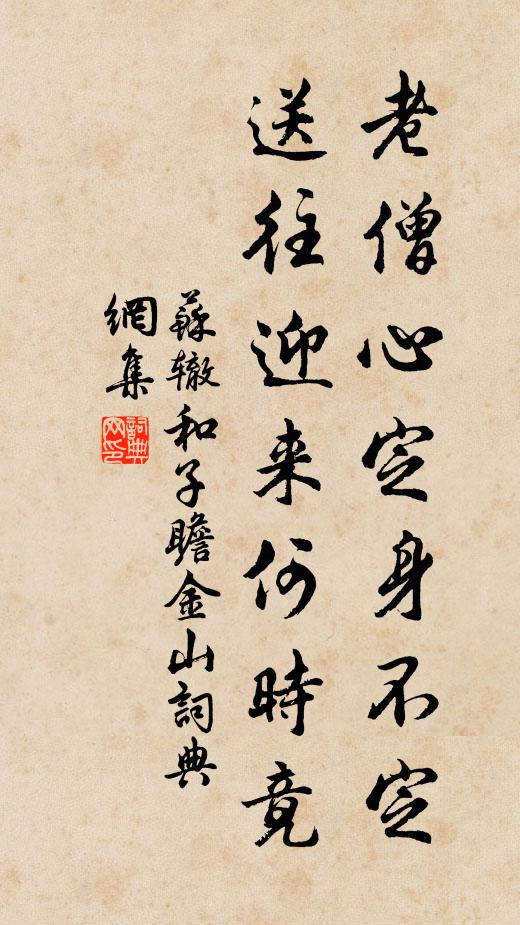 老僧心定身不定
送往迎来何時竟
蘇辙和子瞻金山詞典
網集
詞典网印